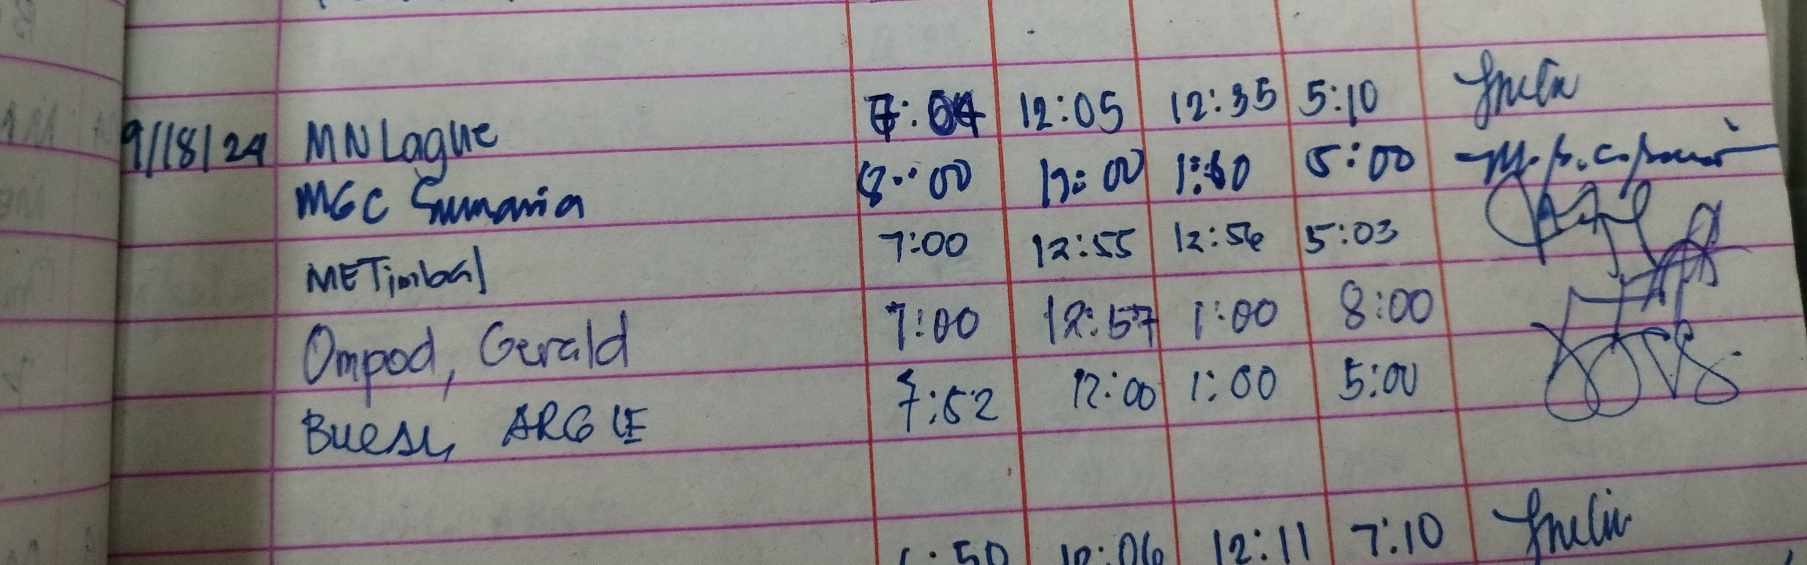 9/18/24 MN Lague 7:04 12:05 12:35 5:10
MGC Sumania 8:00 12:00 1:00 5:00
METimbal 7:00 12:55 12:56 5:03
Ompod, Gerald 7:00 12:57 1:00 8:00
Buesa, ARGIE 7:52 12:00 1:00 5:00
:50 12:06 12:11 7:10